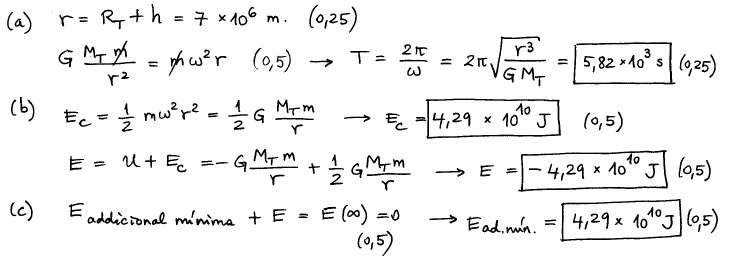 (a) r = R_T + h = 7 × 10⁶ m. (0,25)
G M_T m / r² = m ω² r (0,5) → T = 2π/ω = 2π √(r³ / G M_T) = 5,82 × 10³ s (0,25)
(b) E_c = 1/2 m ω² r² = 1/2 G M_T m / r → E_c = 4,29 × 10¹⁰ J (0,5)
E = U + E_c = - G M_T m / r + 1/2 G M_T m / r → E = - 4,29 × 10¹⁰ J (0,5)
(c) E addicional mínima + E = E(∞) = 0 → E ad. mín. = 4,29 × 10¹⁰ J (0,5)
(0,5)